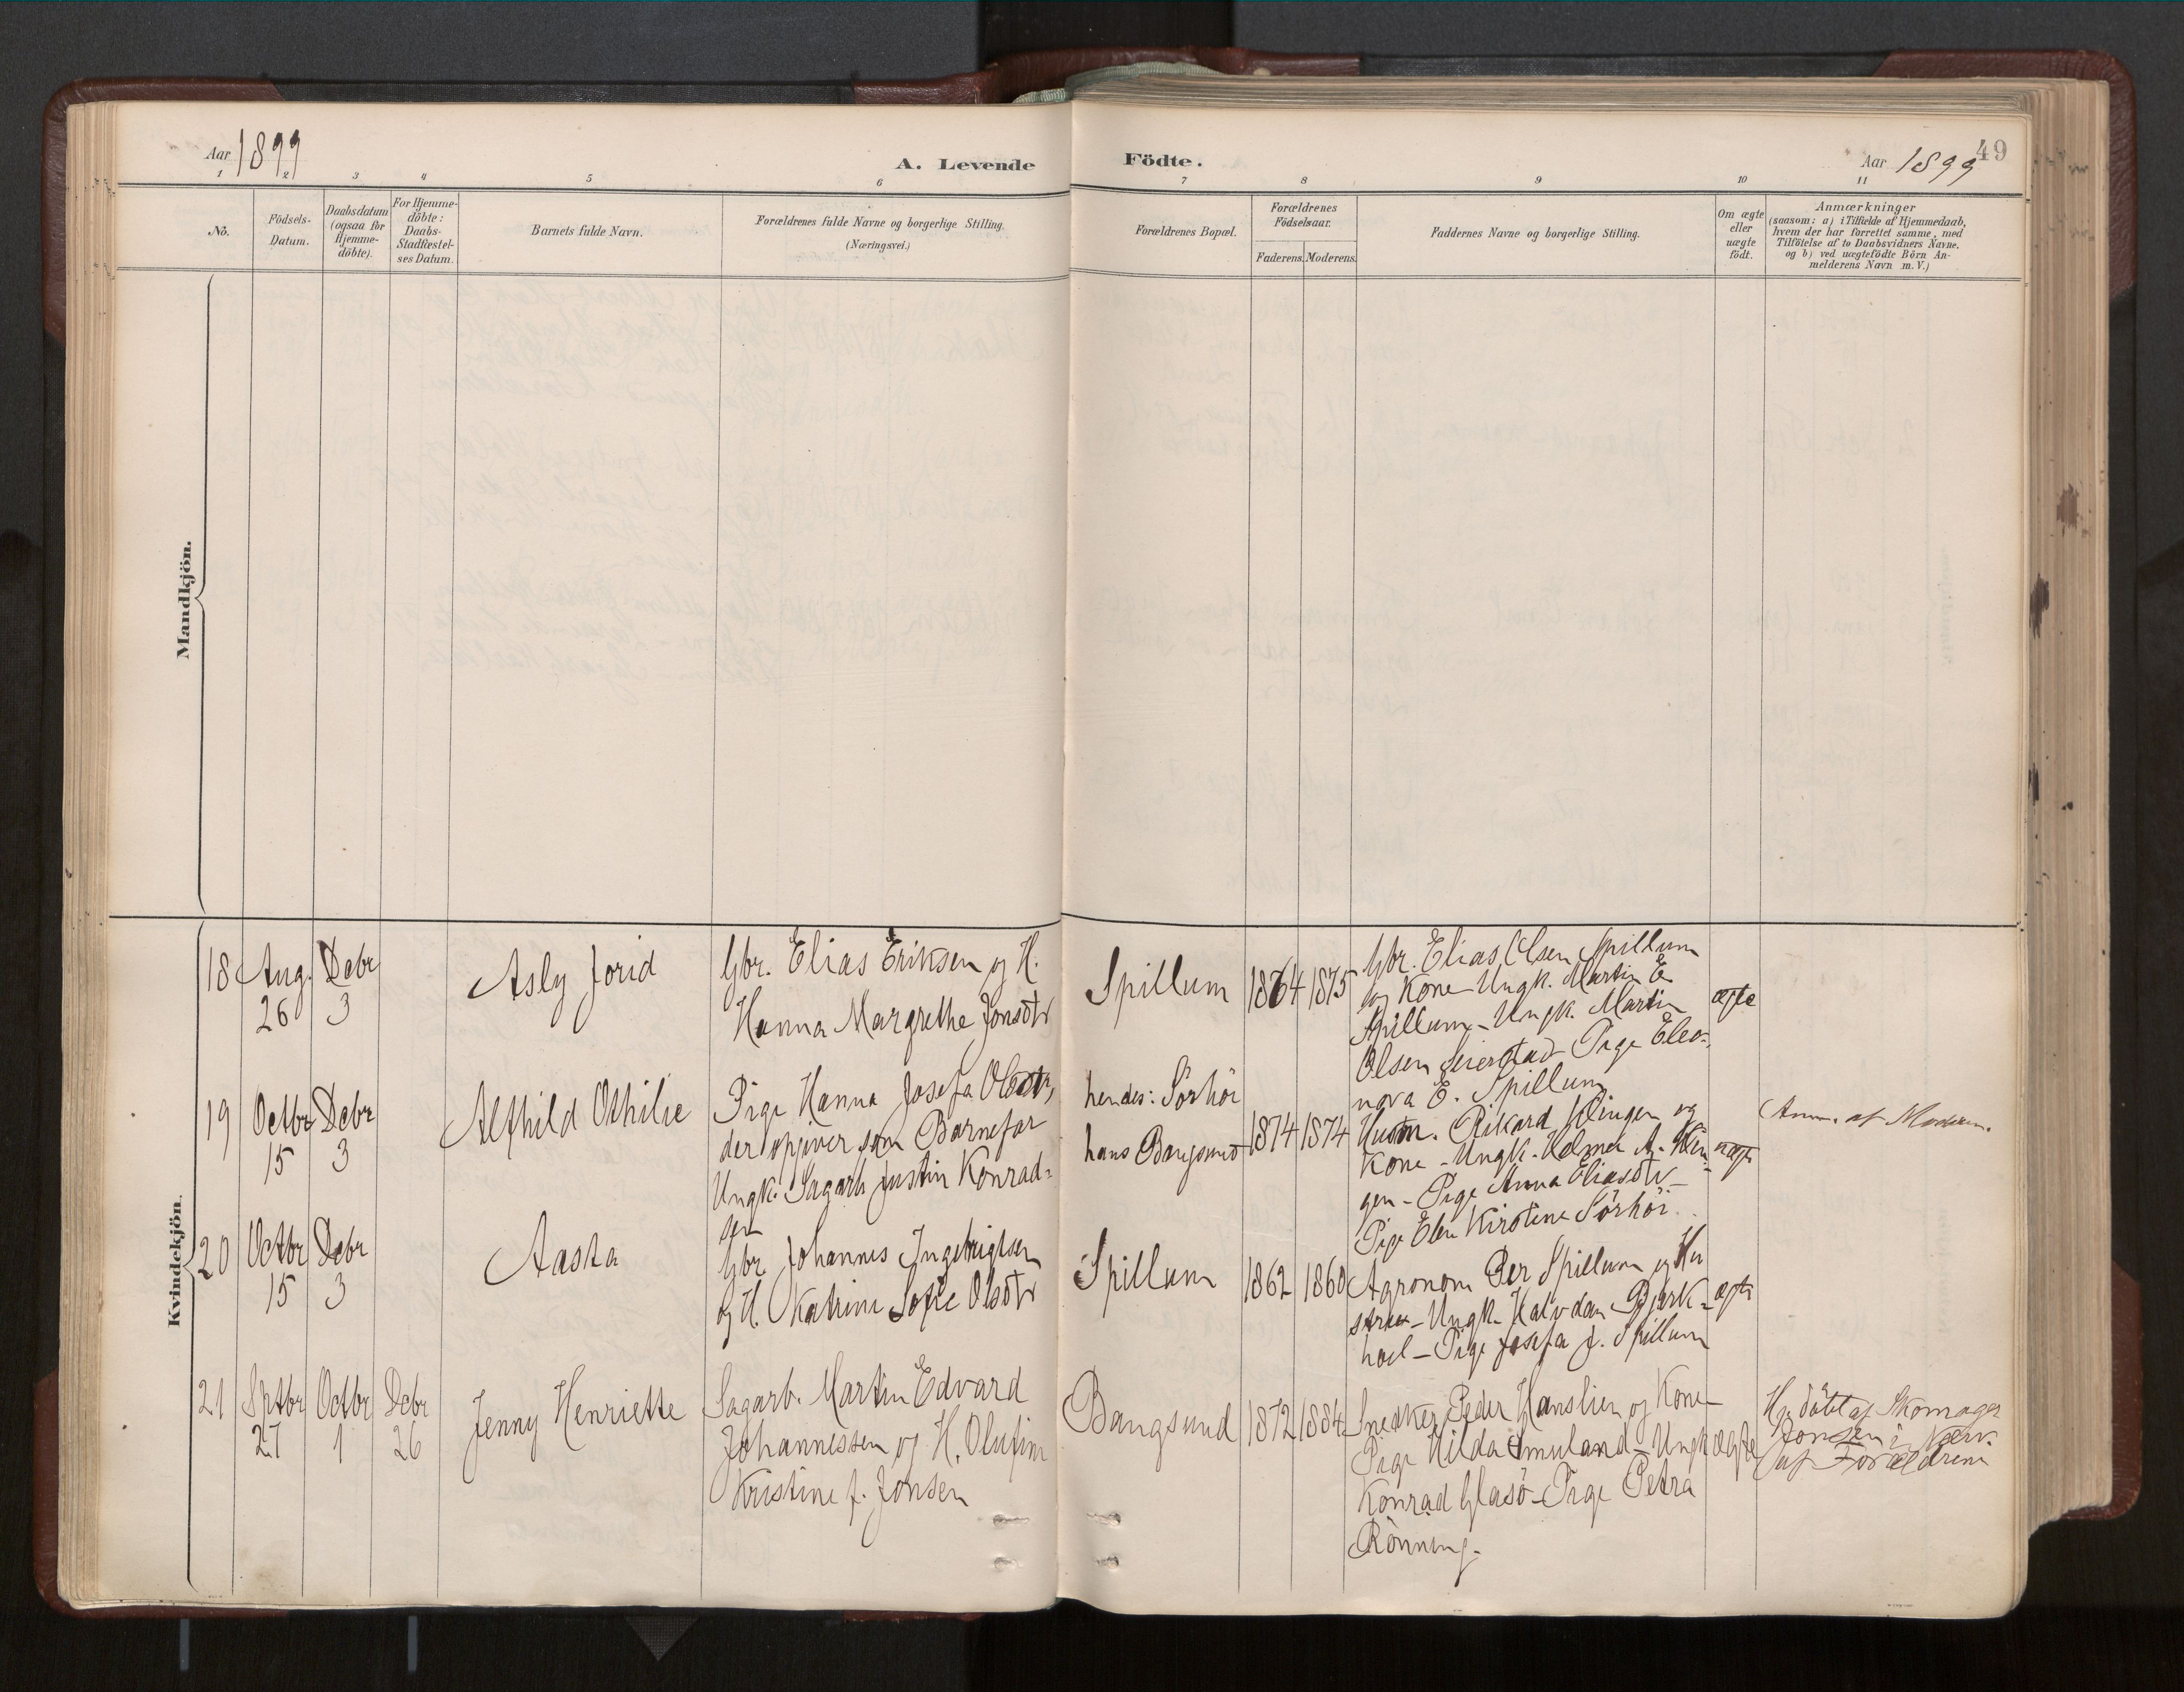 Aar 1899
A. Levende
Födte.
Aar 1899
49
1 2 3 4 5 6 7 8 9 10 11
No.
Födsels-
Datum.
Daabsdatum
(ogsaa for
Hjemme-
döbte).
For Hjemme-
döbte:
Daabs-
Stadfæstel-
ses Datum.
Barnets fulde Navn.
Forældrenes fulde Navne og borgerlige Stilling.
(Næringsvei.)
Forældrenes Bopæl.
Forældrenes
Födselsaar.
Faderens. Moderens.
Faddernes Navne og borgerlige Stilling.
Om ægte
eller
uægte
födt.
Anmærkninger
(saasom: a) i Tilfælde af Hjemmedaab,
hvem der har forrettet samme, med
Tilföielse af to Daabsvidners Navne.
og b) ved uægtefödte Börn An-
melderens Navn m. V.)
Mandkjön.
Kvindekjön.
18
Aug.
26
Debr
3
Asly Jorid
Gbr. Elias Eriksen og H.
Hanna Margrethe Jonsdtr
Spillum
1864
1875
Gbr. Elias Olsen Spillum
og Kone – Ungk. Martin E.
Spillum – Ungk. Martin
Olsen Seierstad – Pige Eleo-
nora E. Spillum
ægte
19
Octbr
15
Debr
3
Alfhild Othilie
Pige Hanna Josefa Olsdtr,
der opgiver som Barnefar
Ungk. Sagarb Justin Konrad-
sen
hendes: Sörhöi
hans Bangsund
1874
1874
Husm. Rikard Klingen og
Kone – Ungk. Helmer A. Klin-
gen – Pige Anna Eliasdtr –
Pige Elen Kirstine Sörhöi.
uægte
Anm. af Moderen.
20
Octbr
15
Debr
3
Aasta
Gbr Johannes Ingebrigtsen
og H. Katrine Sofie Olsdtr
Spillum
1862
1860
Agronom Per Spillum og Hu
stru – Ungk. Halvdan Bjerk-
hoel – Pige Josefa J. Spillum
ægte
21
Sptbr
27
Octbr
1
Debr
26
Jenny Henriette
Sagarb. Martin Edvard
Johannessen og H. Olufine
Kristine f. Jonsen
Bangsund
1872
1884
Snedker Peder Hanslien og Kone –
Pige Hilda Smuland – Ungk
Konrad Glasö – Pige Petra
Rönning.
ægte
Hj. döbt af Skomager
Jonsen i Nærv.
af Forældrene